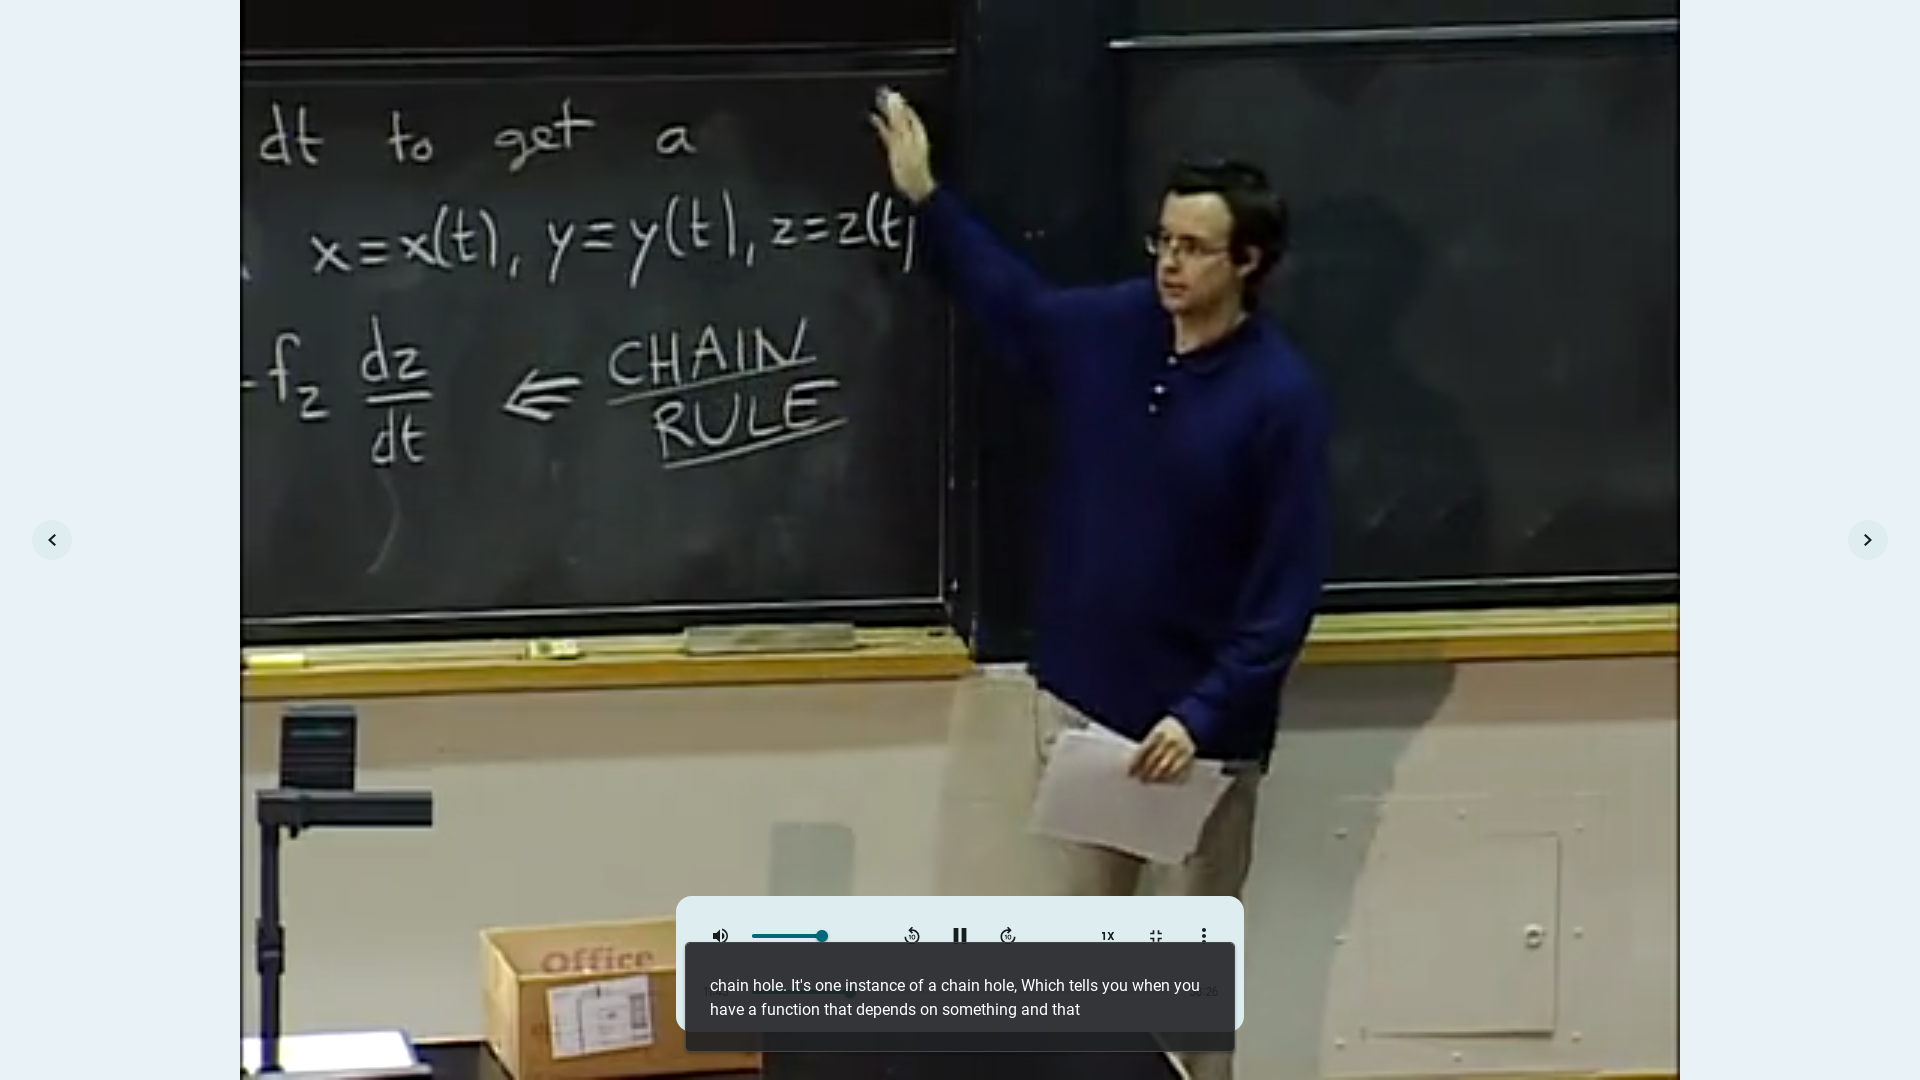 dt to get a
x=x(t), y=y(t), z=z(t)
f_z dz/dt ⇐ CHAIN
RULE
Office
10
10
1X
chain hole. It's one instance of a chain hole, Which tells you when you
have a function that depends on something and that